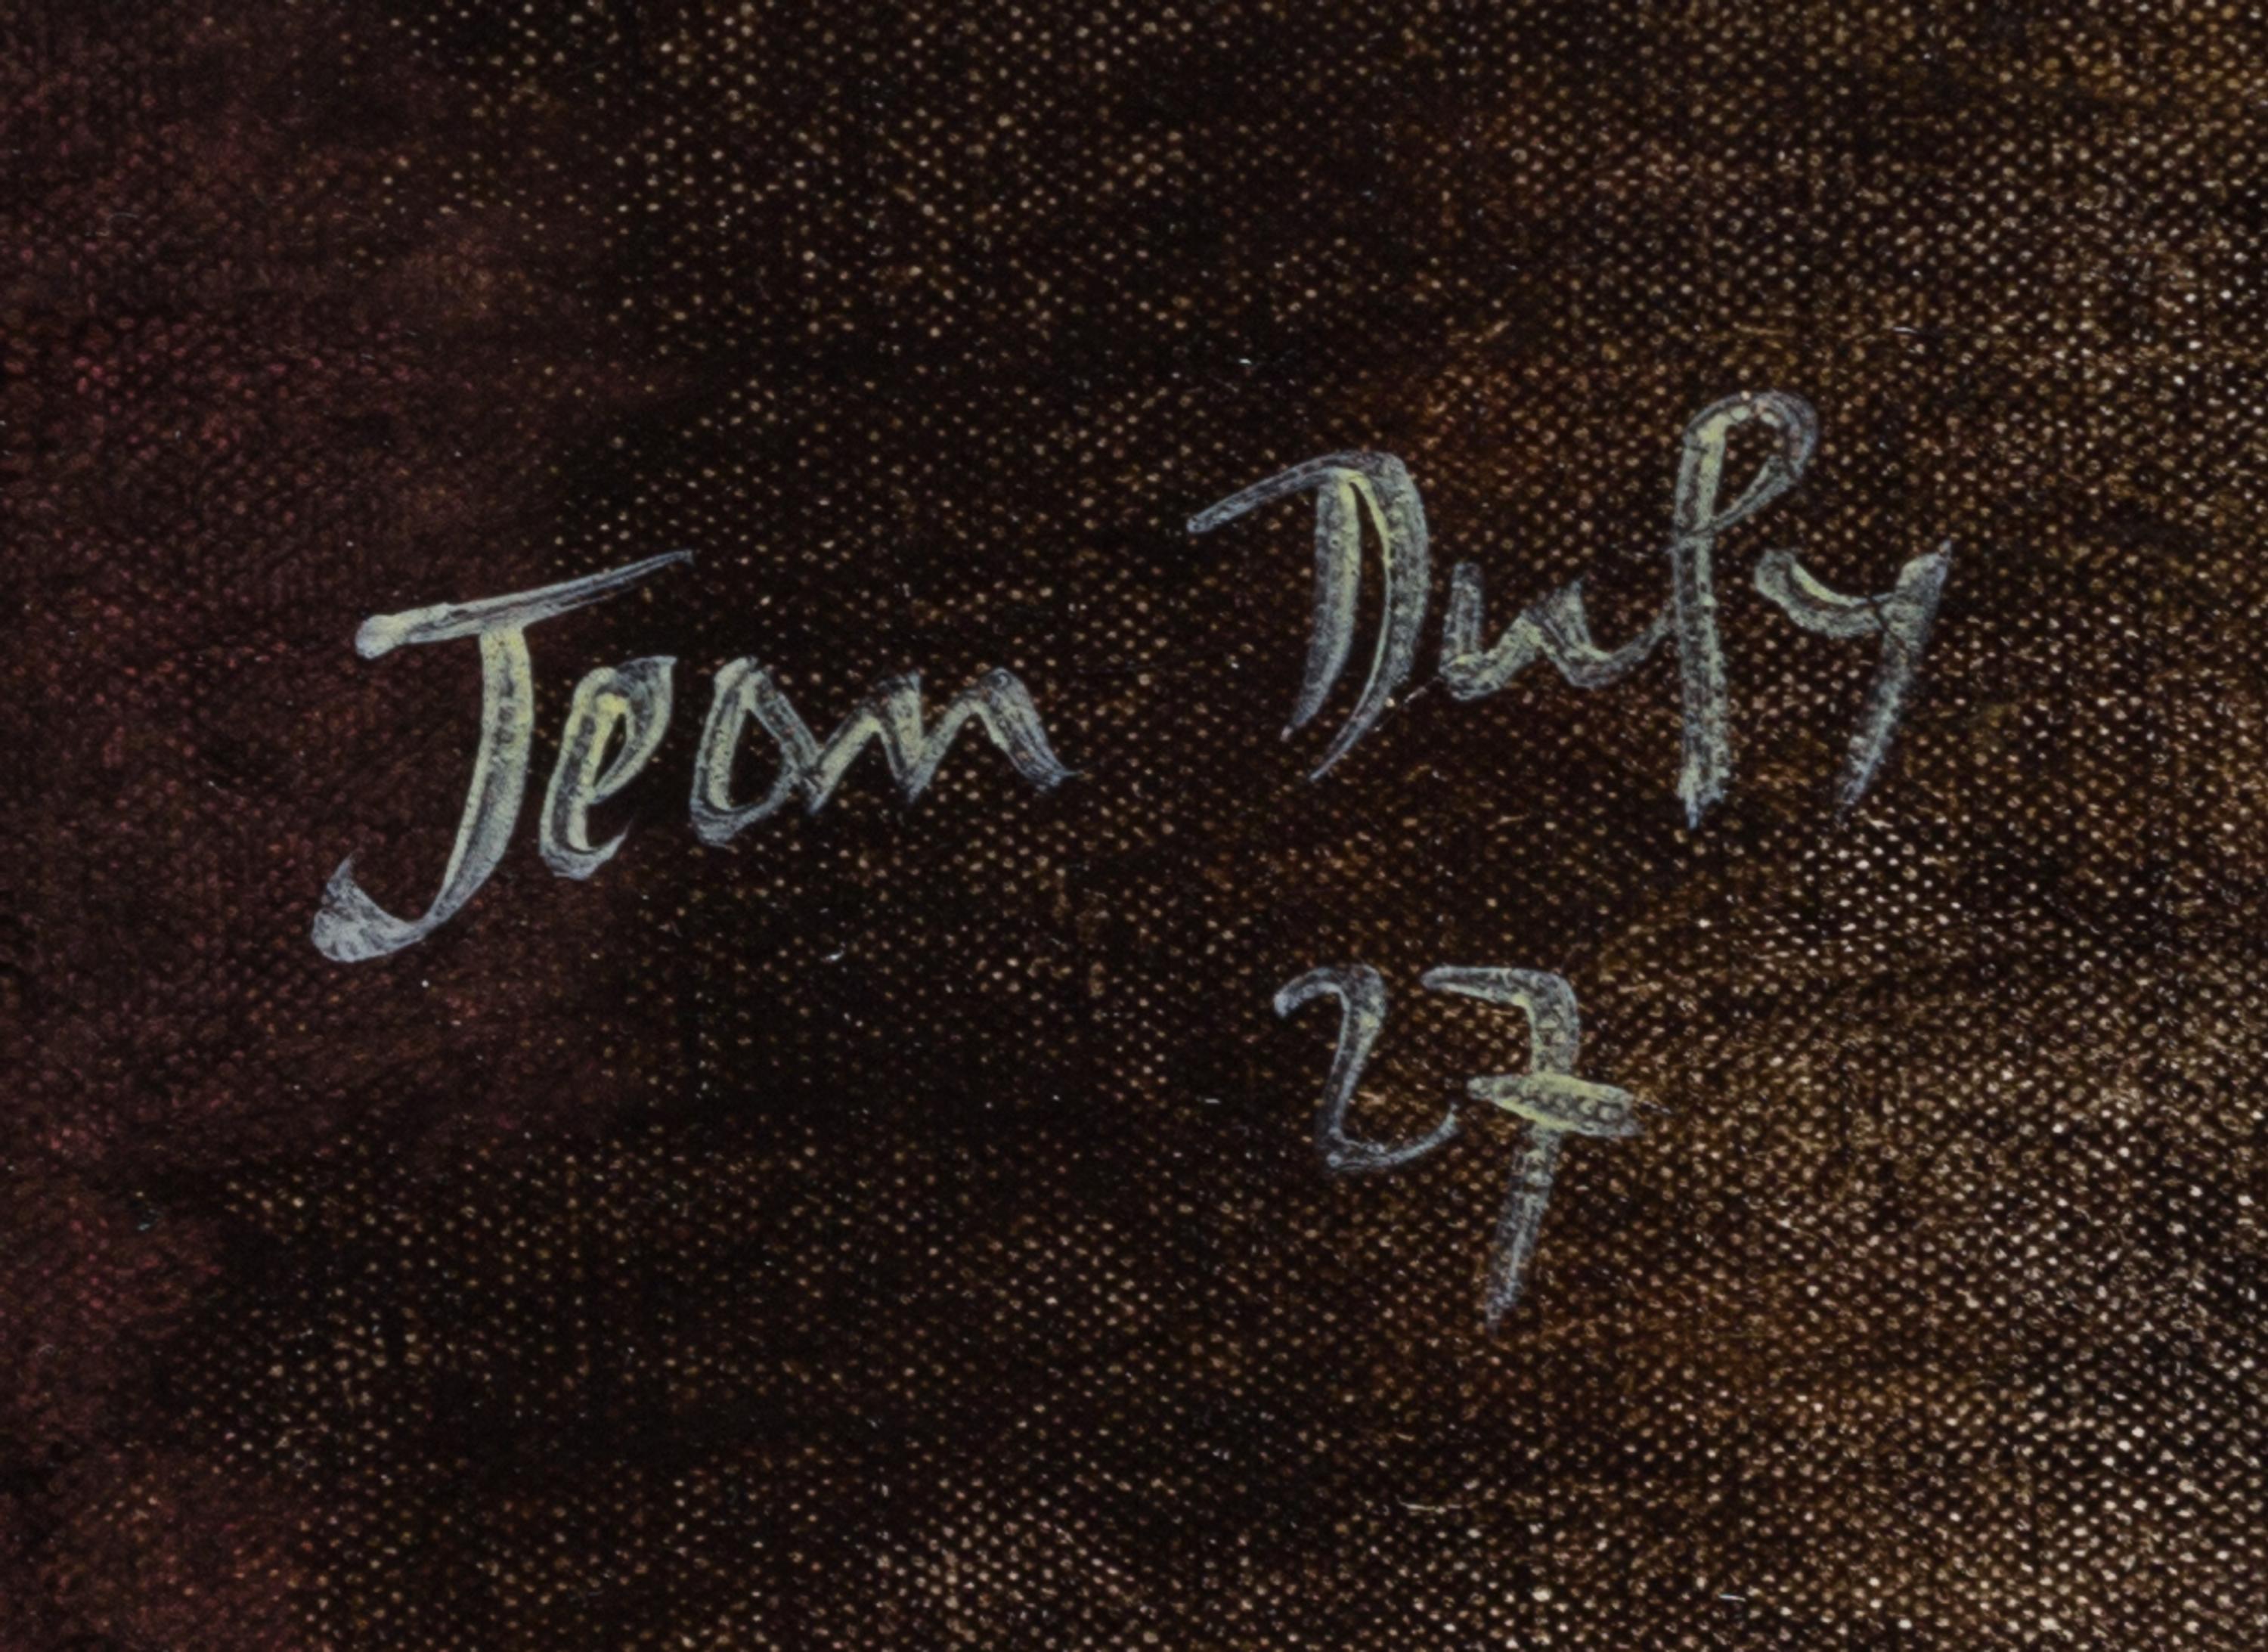 Jean Dufy
27